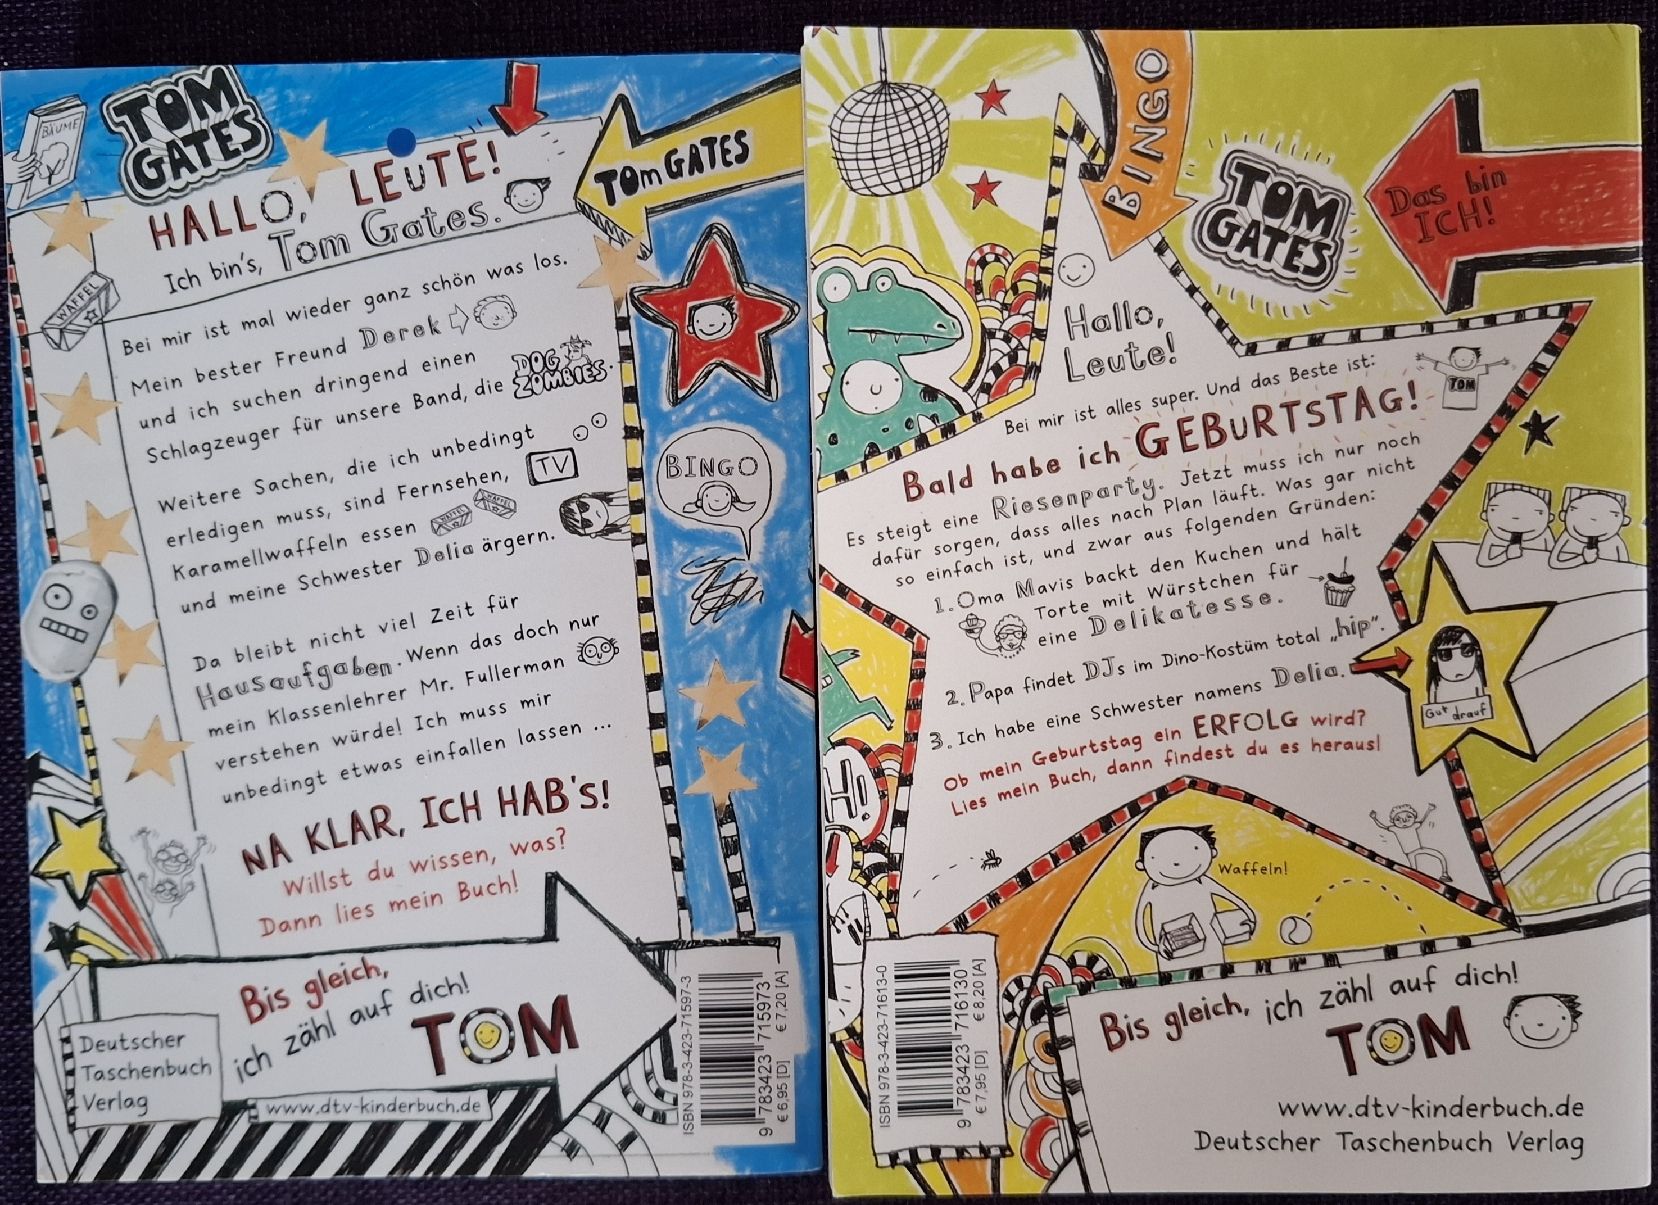 BÄUME
TOM
GATES
HALLO, LEUTE!
Ich bin's, Tom Gates.
TOm GATES
WAFFEL
Bei mir ist mal wieder ganz schön was los.
Mein bester Freund Derek
und ich suchen dringend einen
Schlagzeuger für unsere Band, die DOG ZOMBIES.
Weitere Sachen, die ich unbedingt
erledigen muss, sind Fernsehen, TV
Karamellwaffeln essen WAFFEL WAFFEL
und meine Schwester Delia ärgern.
BINGO
Da bleibt nicht viel Zeit für
Hausaufgaben. Wenn das doch nur
mein Klassenlehrer Mr. Fullerman
verstehen würde! Ich muss mir
unbedingt etwas einfallen lassen ...
NA KLAR, ICH HAB's!
Willst du wissen, was?
Dann lies mein Buch!
Bis gleich,
ich zähl auf dich!
TOM
Deutscher
Taschenbuch
Verlag
www.dtv-kinderbuch.de
ISBN 978-3-423-71597-3
9 783423 715973
€ 6,95 [D] € 7,20 [A]
BINGO
TOM
GATES
Das bin
ICH!
Hallo,
Leute!
TOM
Bei mir ist alles super. Und das Beste ist:
Bald habe ich GEBURTSTAG!
Es steigt eine Riesenparty. Jetzt muss ich nur noch
dafür sorgen, dass alles nach Plan läuft. Was gar nicht
so einfach ist, und zwar aus folgenden Gründen:
1. Oma Mavis backt den Kuchen und hält
Torte mit Würstchen für
eine Delikatesse.
2. Papa findet DJs im Dino-Kostüm total „hip".
3. Ich habe eine Schwester namens Delia.
Gut drauf
Ob mein Geburtstag ein ERFOLG wird?
Lies mein Buch, dann findest du es heraus!
Hi!
Waffeln!
Bis gleich, ich zähl auf dich!
TOM
www.dtv-kinderbuch.de
Deutscher Taschenbuch Verlag
ISBN 978-3-423-71613-0
9 783423 716130
€ 7,95 [D] € 8,20 [A]